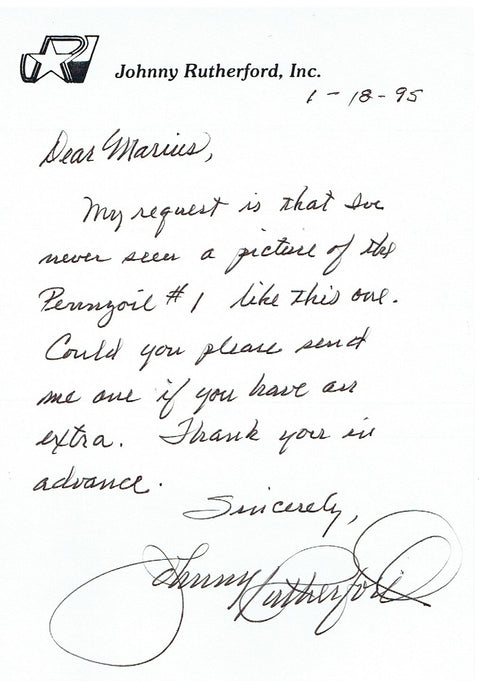 Johnny Rutherford, Inc.
1-18-95
Dear Marius,
My request is that I've
never seen a picture of the
Pennzoil #1 like this one.
Could you please send
me one if you have an
extra. Thank you in
advance.
Sincerely,
Johnny Rutherford